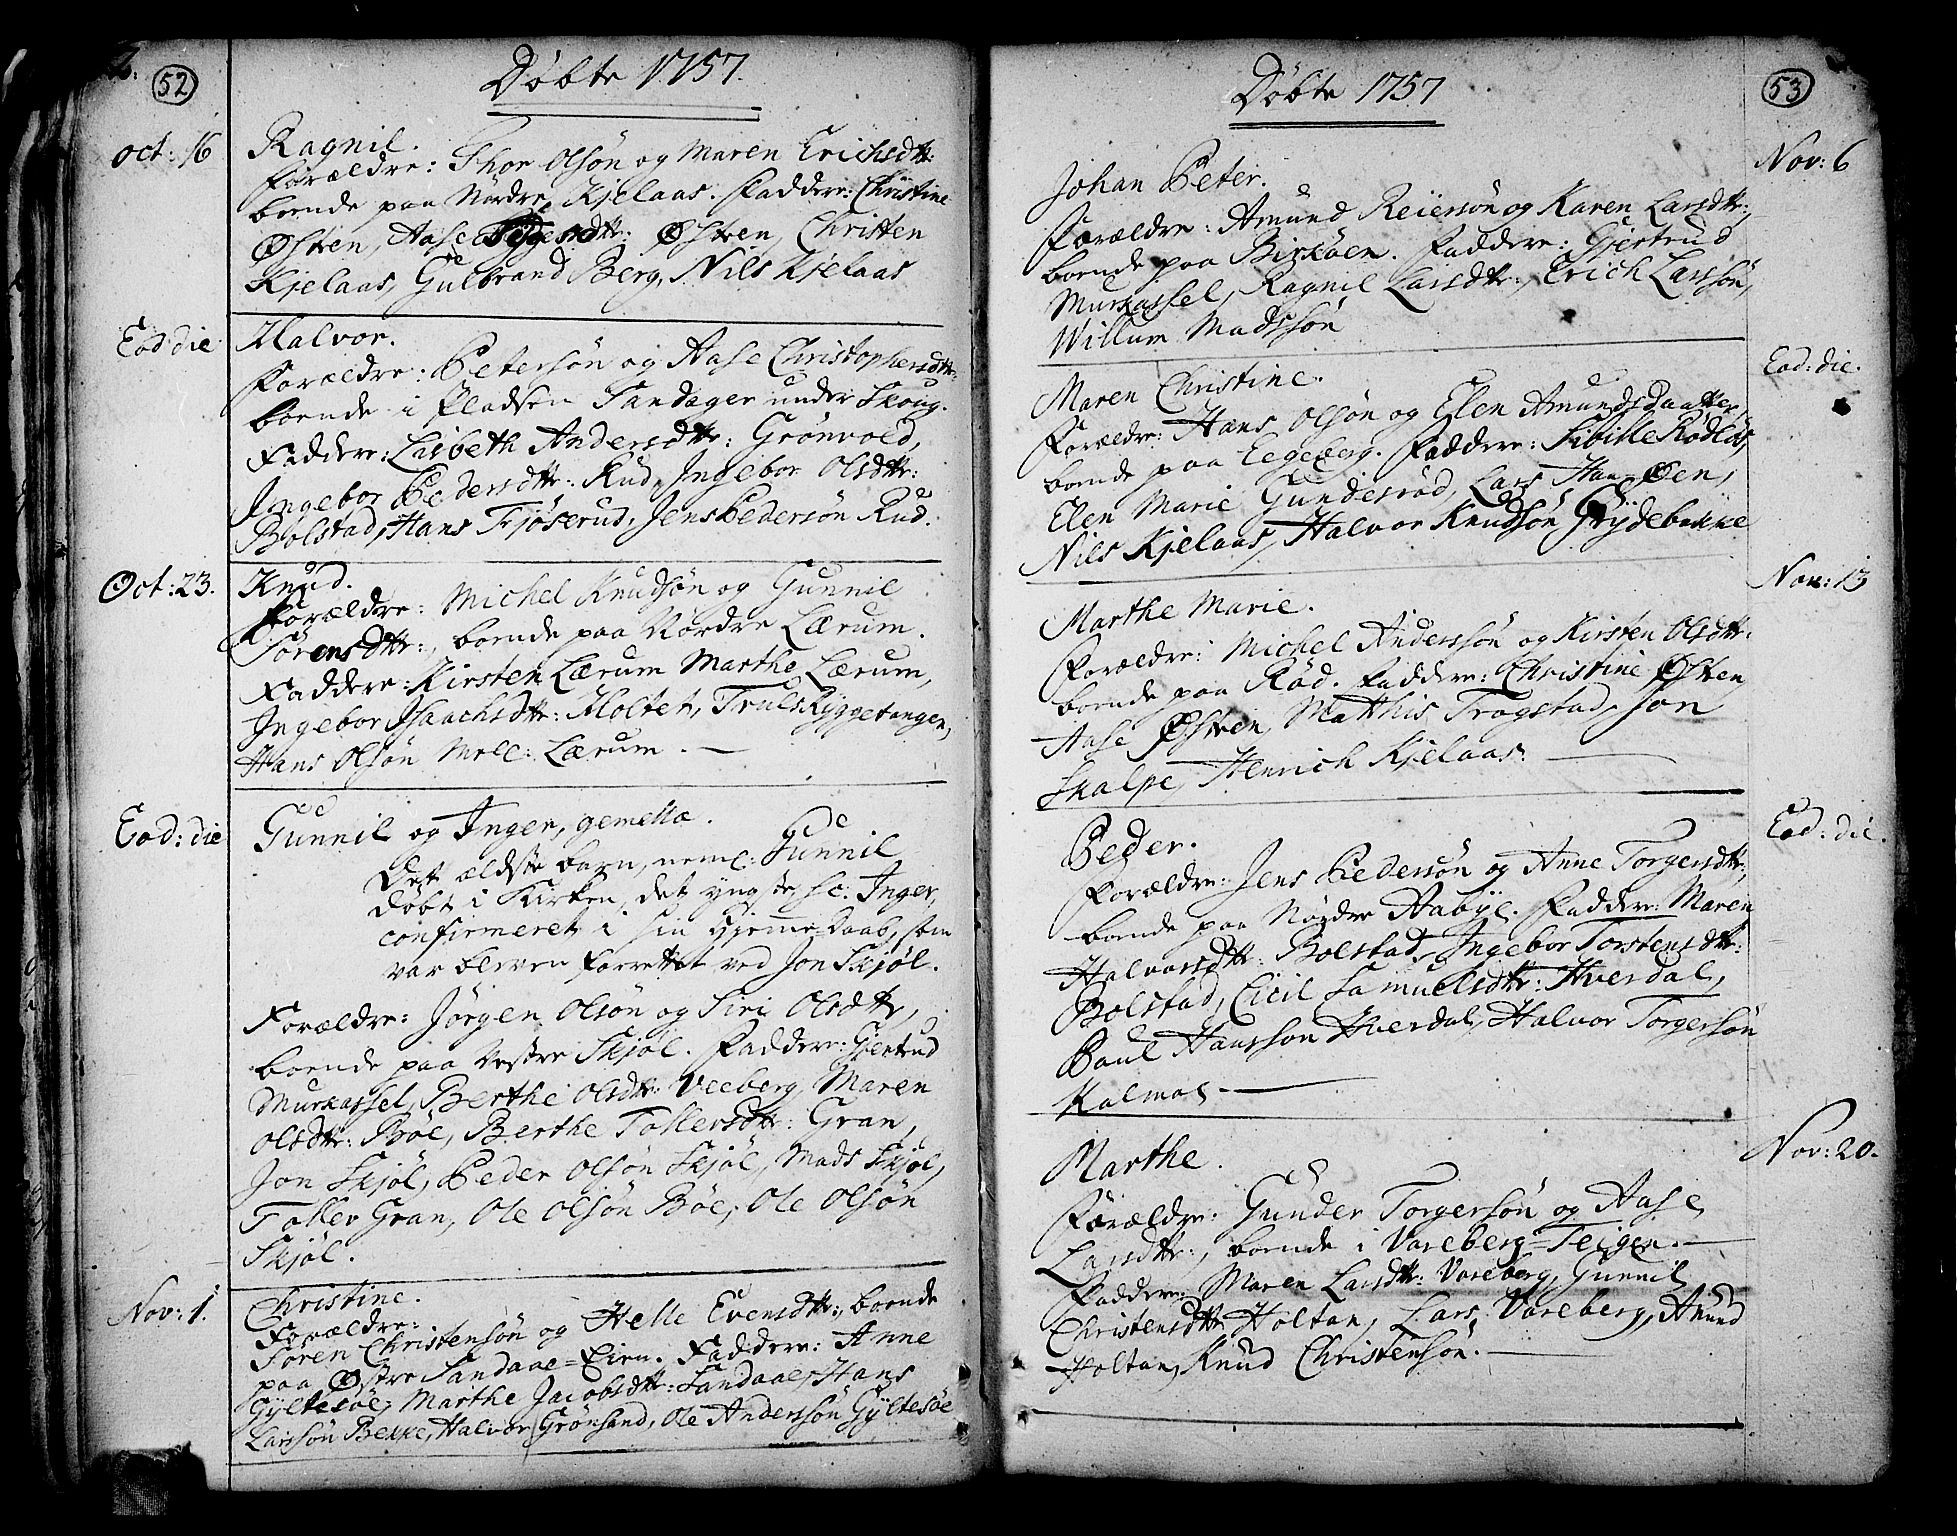 52
Döbte 1757.
Oct: 16
Ragnil.
Forældre: Thor Olsön og Maren Erichsdtr:
boende paa Nordre Kjelaas. Faddere: Christine
Østren, Aase Østren, Christen
Kjelaas, Gulbrand Berg, Nils Kjelaas
Eod: die
Halvor.
Forældre: Petersön og Aase Christophersdtr:
boende i Pladsen Sandager under Skoug.
Faddere: Lisbeth Andersdtr: Grönvold,
Ingebor Pedersdtr: Rud, Ingebor Olsdtr:
Bolstad, Hans Fjöserud, Jens Pedersön Rud.
Oct: 23.
Knud.
Forældre: Michel Knudsön og Gunnil
Sörensdtr:, boende paa Nordre Lærum.
Faddere: Kirsten Lærum Marthe Lærum,
Ingebor Isaachsdtr: Holtet, Truls Ryggetangen,
Hans Olsön Mell: Lærum. —
Eod: die
Gunnil og Inger, gemellæ.
Det ældste barn, neml: Gunnil
döbt i Kirken, det yngste, sc: Inger,
confirmeret i sin Hjemme-Daab, som
var bleven forrettet ved Jon Skjöl.
Forældre: Jörgen Olsön og Siri Olsdtr,
boende paa Vestre Skjöl. Faddere: Gjertrud
Murkassel, Berthe Olsdtr: Veeberg Maren
Olsdtr: Böe, Berthe Tollersdtr: Gran,
Jon Skjöl, Peder Olsön Skjöl, Mads Skjöl,
Toller Gran, Ole Olsön Böe, Ole Olsön
Skjöl.
Nov: 1.
Christine.
Forældre:
Sören Christensön og Helle Evensdtr:, boende
paa Østre Sandaae-Eien. Faddere: Anne
Gyltesöe, Marthe Jacobsdtr: Sandaae, Hans
Larssön Bekke, Halvor Grönsand, Ole Anderssön Gyltesöe
53
Döbte 1757
Nov: 6
Johan Peter.
Forældre: Amund Reiersön og Karen Larsdtr:,
boende paa Birköen. Faddere: Gjertrud
Murkassel, Ragnil Larsdtr:, Erich Larssön,
Willum Madssön
Eod: die.
Maren Christine.
Forældre: Hans Olsön og Elen Amundsdaatter,
boende paa Eegeberg. Faddere: Sibille Rödlös,
Elen Marie Gundesröd, Lars Haa-Øen,
Nils Kjelaas, Halvor Knudsön Grydebakke
Nov: 13
Marthe Marie.
Forældre: Michel Anderssön og Kirsten Olsdtr:
boende paa Röd. Faddere: Christine Østren
Aase Østren, Matthis Trogstad, Jon
Skalpe, Henrich Kjelaas. —
Eod: die.
Peder.
Forældre: Jens Pedersön og Anne Torgersdtr:,
boende paa Nordre Aabye. Faddere: Maren
Halvorsdtr: Bolstad, Ingebor Torstensdtr:
Bolstad, Cicil Samuelsdtr: Hverdal,
Paul Hanssön Hverdal, Halvor Torgersön
Kolmos —
Nov: 20.
Marthe.
Forældre: Gunder Torgersön og Aase
Larsdtr:, boende i Vareberg-Teigen. —
Faddere: Maren Larsdtr: Vareberg, Gunnil
Christensdtr Holtan, Lars Vareberg, Anund
Holtan, Knud Christensön. —